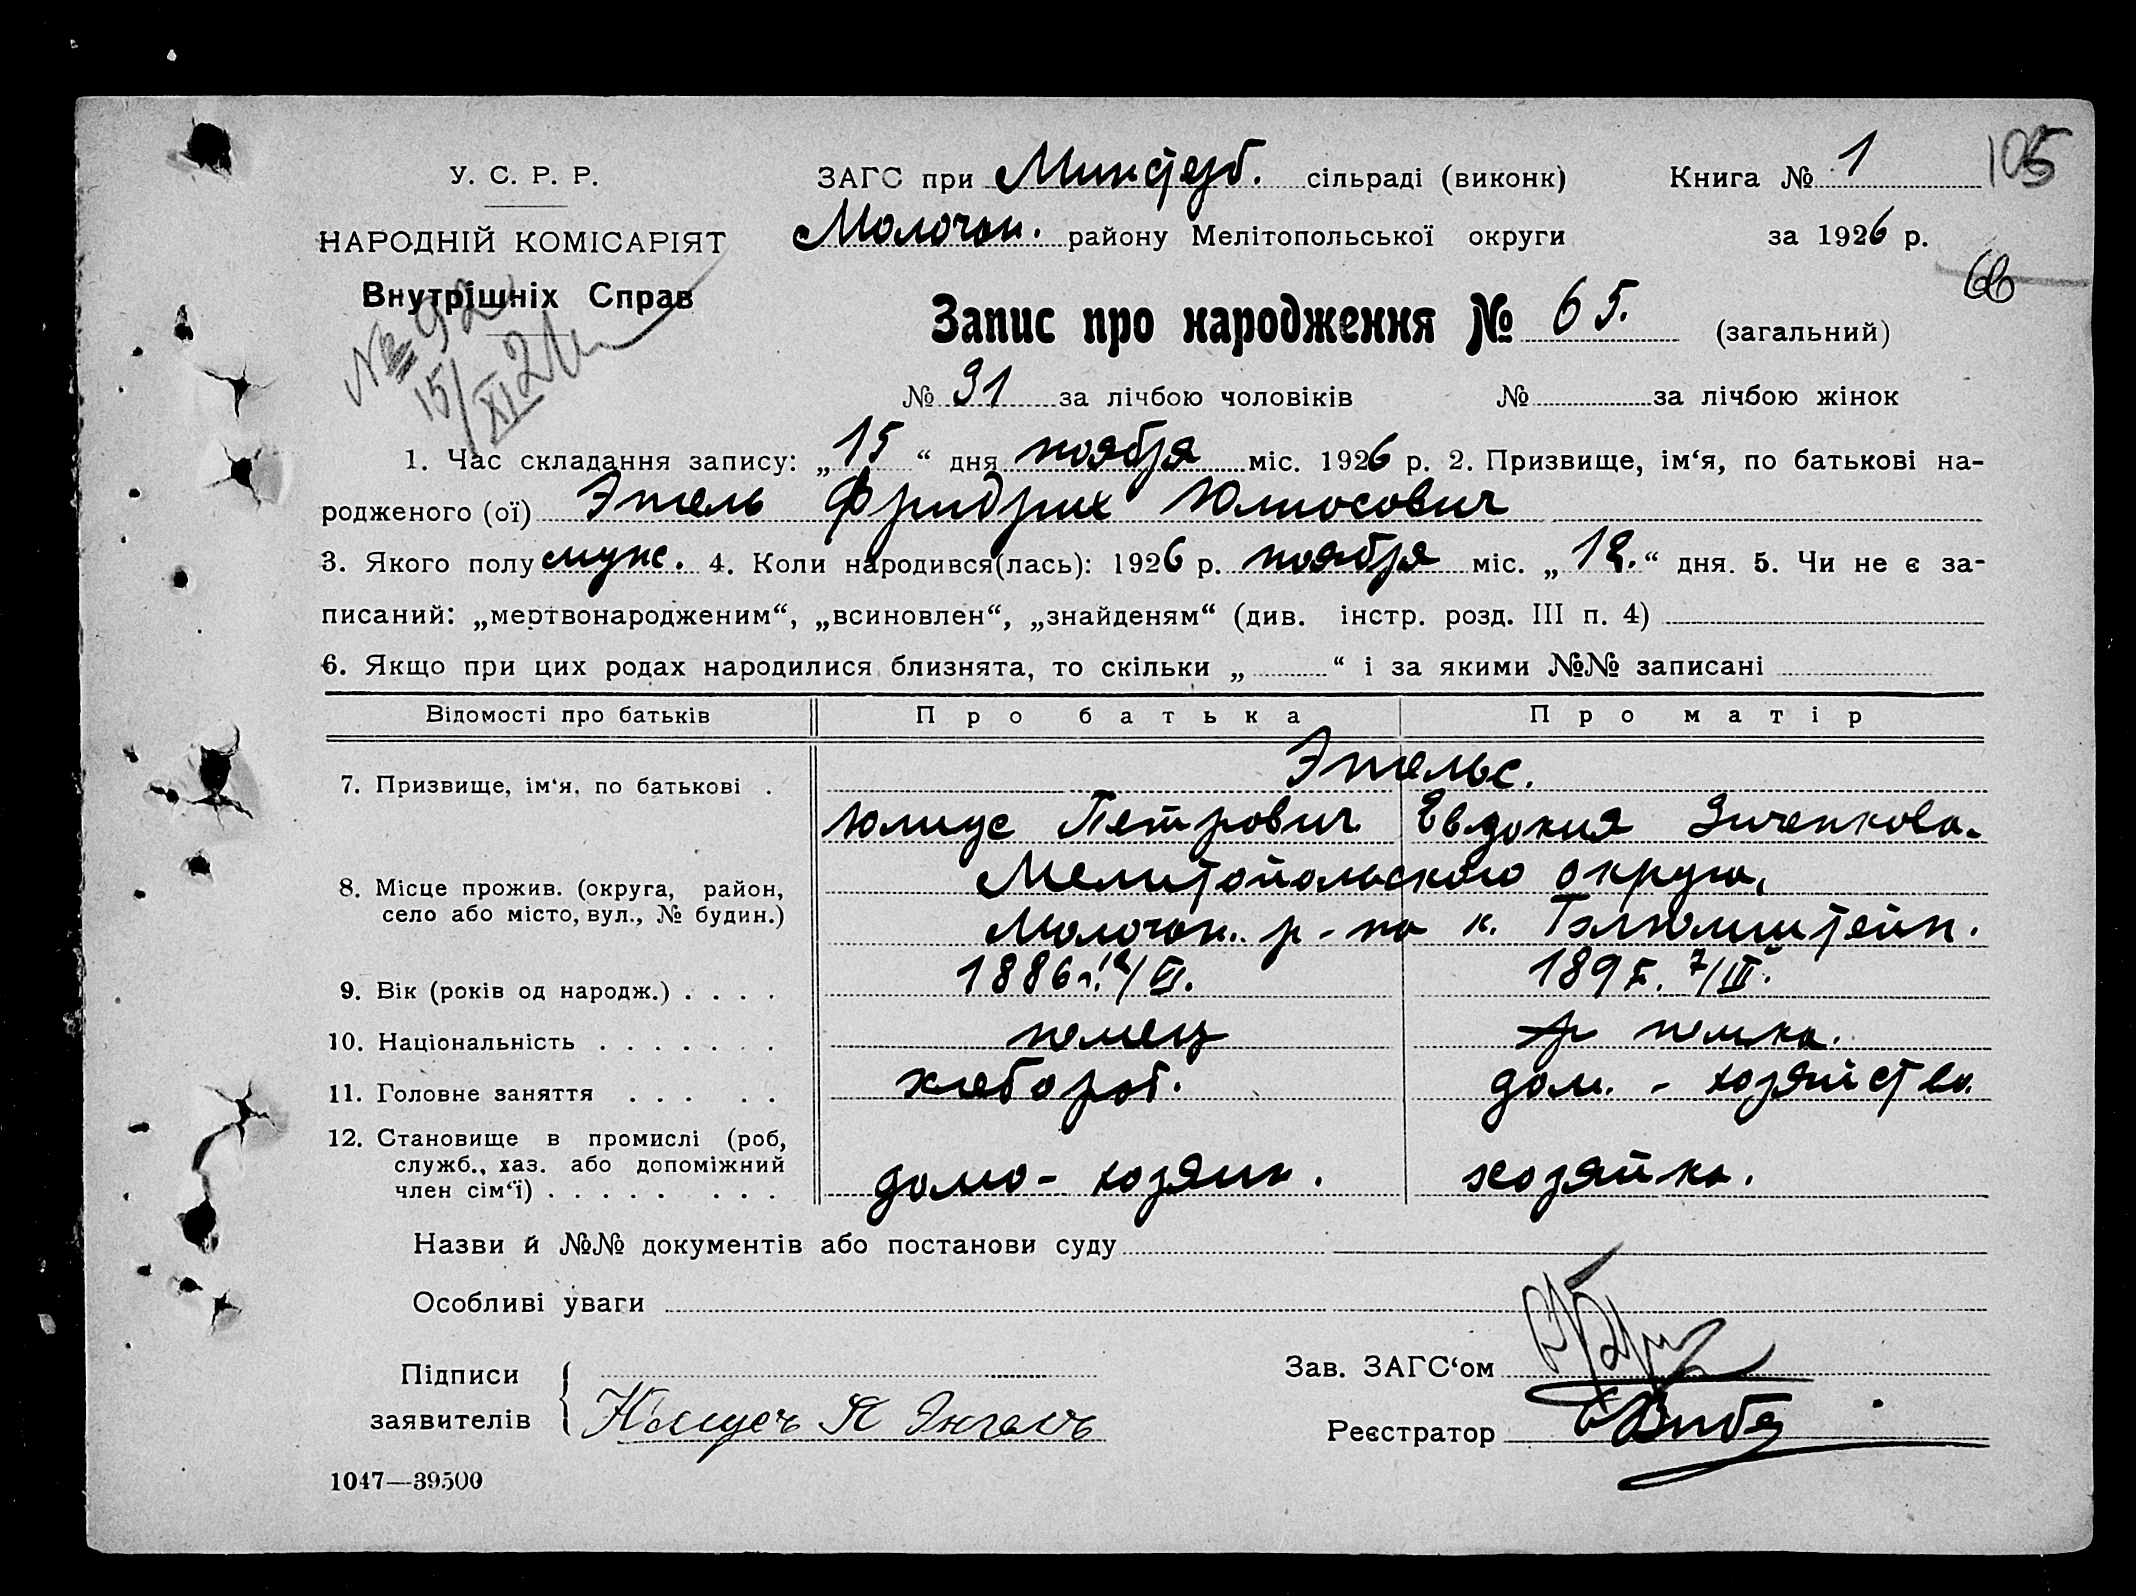 У. С. Р. Р.
НАРОДНІЙ КОМІСАРІЯТ
Внутрішніх Справ
№ 92
15/XI 26
ЗАГС при Минстерб. сільраді (виконк)
Молочан. району Мелітопольської округи
Книга № 1
105
за 1926 р.
66
Запис про народження № 65. (загальний)
№ 31 за лічбою чоловіків № за лічбою жінок
1. Час складання запису: „15“ дня ноября міс. 1926 р. 2. Призвище, ім‘я, по батькові на-
родженого (ої) Энгель Фридрих Юлиусович
3. Якого полу муж. 4. Коли народився(лась): 1926 р. ноября міс. „12.“ дня. 5. Чи не є за-
писаний: „мертвонародженим“, „всиновлен“, „знайденям“ (див. інстр. розд. III п. 4)
6. Якщо при цих родах народилися близнята, то скільки „ “ і за якими №№ записані
Відомості про батьків Про батька Про матір
Энгельс.
7. Призвище, ім‘я, по батькові .
Юлиус Петрович Евдокия
8. Місце прожив. (округа, район,
село або місто, вул., № будин.)
Мелитопольского округа,
Молочан. р-на к. Блюмштейн.
9. Вік (років од народж.) . . . . 1886 г. 12/VI. 189 7/III.
10. Національність . . . . . . . немец немка.
11. Головне заняття . . . . . хлебороб. дом. - хозяйства.
12. Становище в промислі (роб,
служб., хаз. або допоміжний
член сім‘ї) . . . . . . . . домо-хозяин. хозяйка.
Назви й №№ документів або постанови суду
Особливі уваги
Підписи
заявителів
Юлиусъ П Энгель
Зав. ЗАГС‘ом
Реєстратор
1047—39500